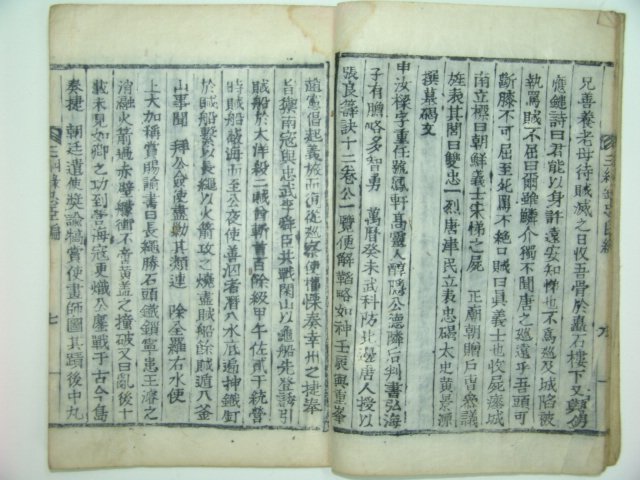 兄善養老母待賊滅之日收吾骨於矗石樓下又與傅
應鏈詩曰君能以身許遠安知悌也不爲巡及城陷被
執罵賊不屈曰爾雖麟介獨不聞唐之巡遠乎吾頭可
斷膝不可屈至死罵不絶口賊曰眞義士也收屍瘞城
南立標曰朝鮮義士宋悌之屍 正廟朝贈戶曹參議
旌表其閭曰雙忠一烈唐津民立表忠碣太史黃景源
撰墓碣文
申汝樑字重任號鳳軒高靈人醇隱公德隣后判書弘海
子有膽略多智勇 萬曆癸未武科防北邊唐人授以
張良籌訣十二卷公一覽便解韜略如神壬辰與重峯
趙憲倡起義旅而復從巡察使權慄奏幸州之捷奉
旨授南冠與忠武平舜臣共戰閑山以龜船先登誘引
賊船於大洋殺二賊酋斬首百餘級甲午佐貳于統營
時賊船蔽海而至公夜使善泅者曆入水底遍抻鐵釘
於賊船繫以長繩以火箭攻之燒盡賊船餘賊遁入釜
山事聞 拜公僉使盡勳其類連 除全羅右水使
上大加稱賞賜諭書曰長繩勝石頭鐵鎖寧患王濬之
消融火箭過赤壁艨衝不啻黃盖之撞破又曰亂後十
載未見如卿之功到營海寇更熾公鏖戰于古今島
奏捷 朝廷遣使奬諭犒賞使畫師圖其蹟後中丸
七